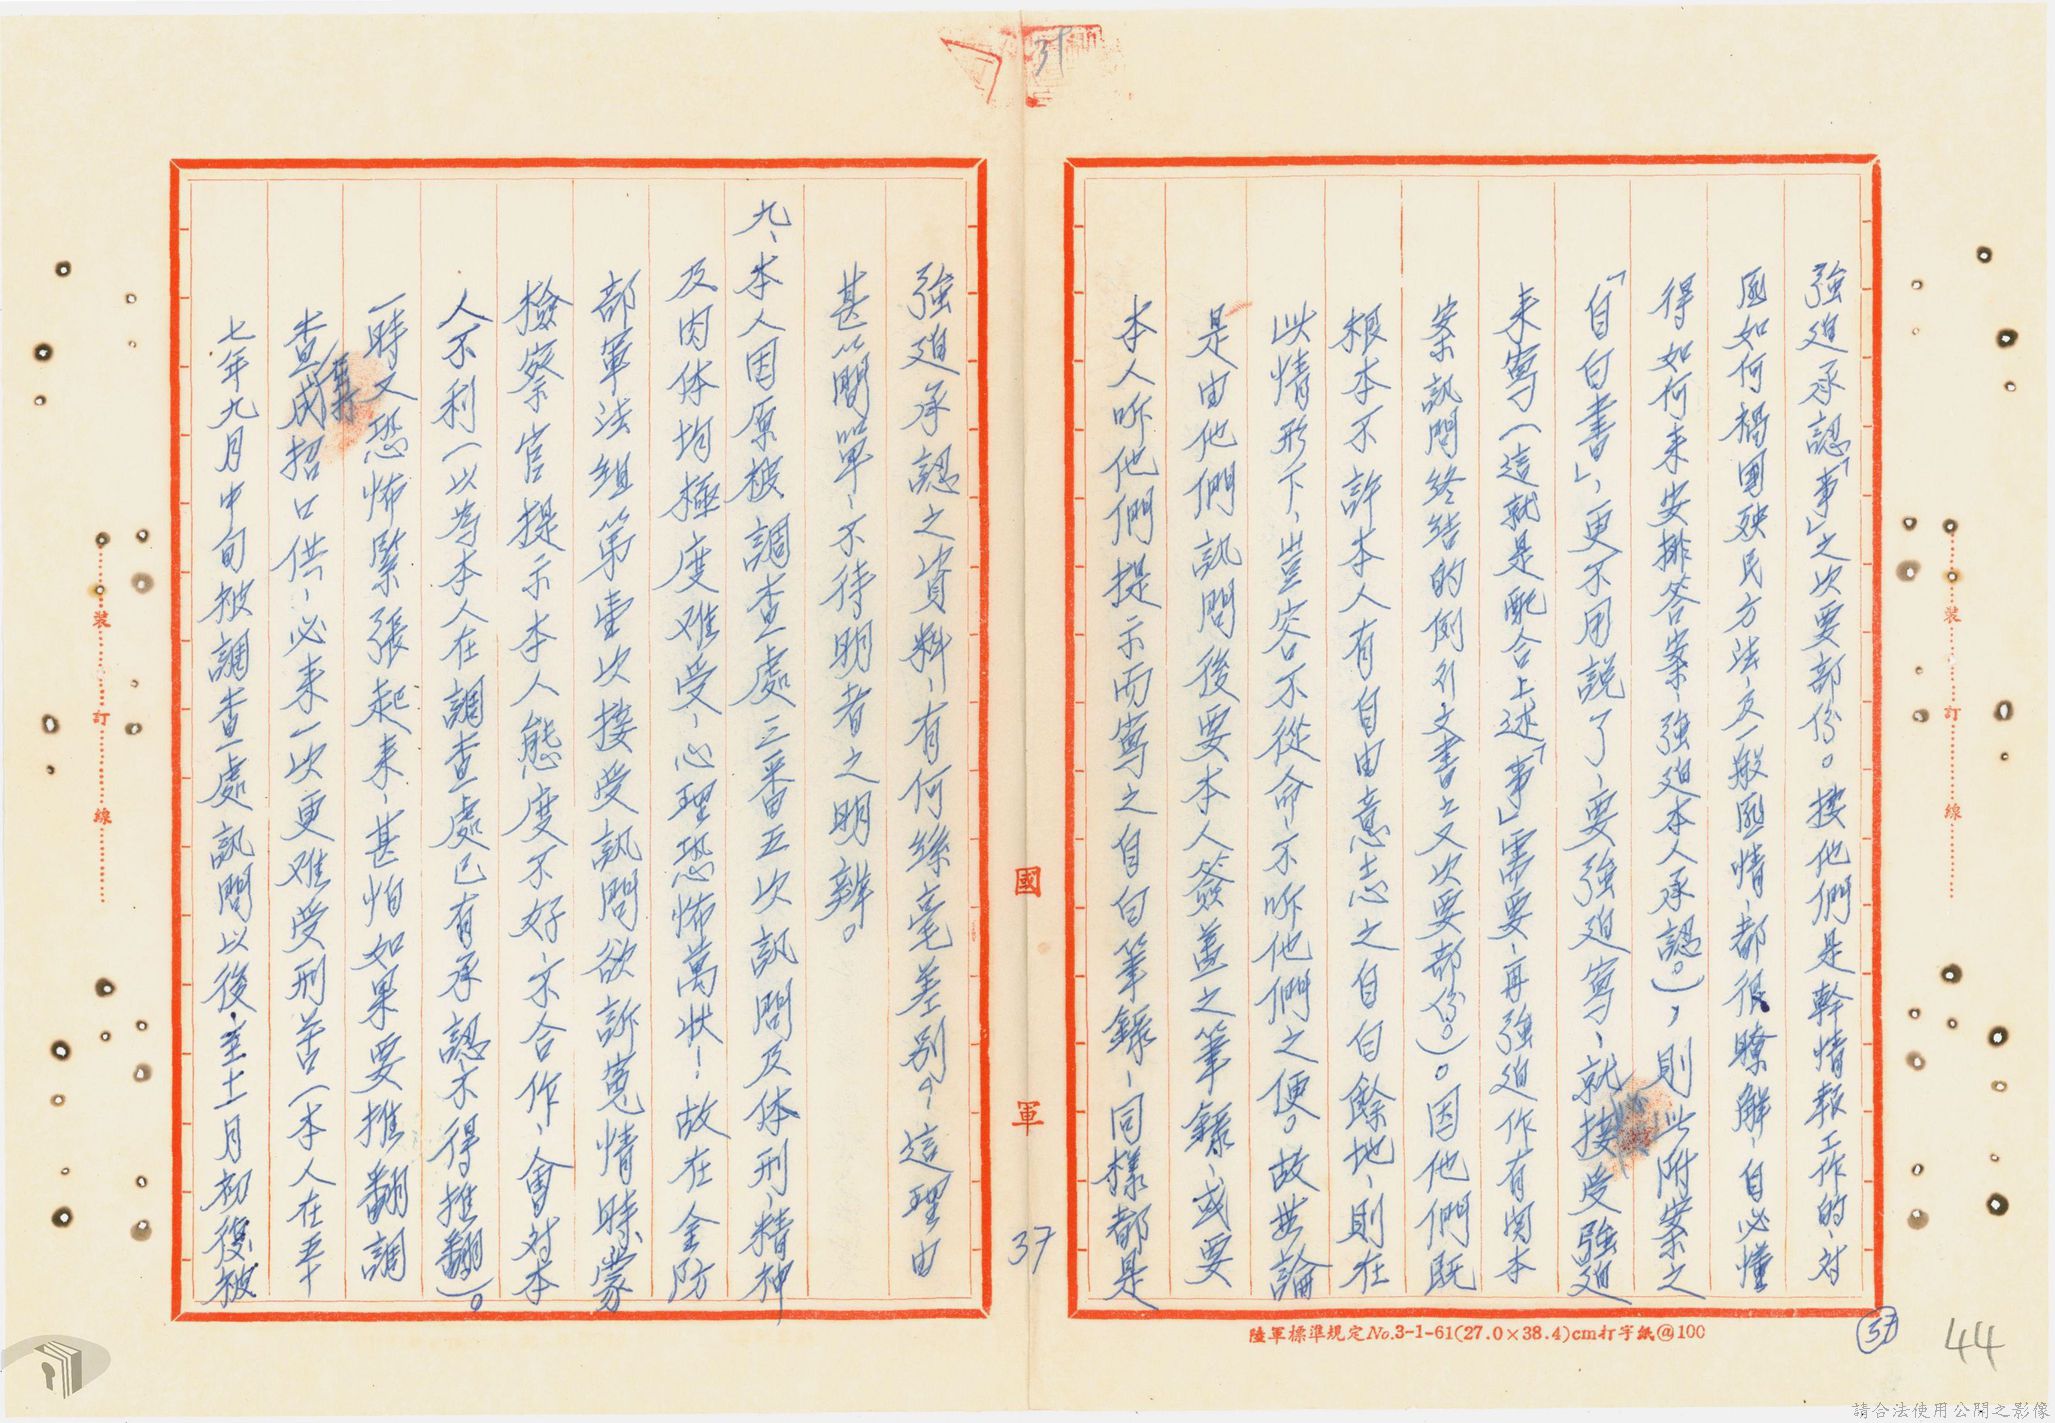 強迫承認「事」之次要部份。按他們是幹情報工作的、對
匪如何禍國殃民方法、及一般匪情、都很瞭解、自必懂
得如何來安排答案、強迫本人承認。),則此附案之
「自白書」、更不用說了、要強迫寫、就接受強迫
來寫(這就是配合上述「事」需要、再強迫作有関本
案訊問終結的例行文書之又次要部份。)。因他們既
根本不許本人有自由意志之自白餘地、則在
此情形下、豈容不從命、不听他們之便。故無論
是由他們訊問後要本人簽蓋之筆錄、或要
本人听他們提示而寫之自白筆錄、同樣都是
強迫承認之資料、有何絲毫差別、這理由
甚簡單、不待明者之明辨。
九、本人因原被調查處三番五次訊問及体刑、精神
及肉体均極度难受、心理恐怖萬狀!故在金防
部軍法組第壹次接受訊問欲訴冤情時、蒙
檢察官提示本人態度不好、不合作、會对本
人不利(以為本人在調查處已有承認不得推翻)。
一時又恐怖緊張起來、甚怕如果要推翻調
查成招口供、必來一次更难受刑苦(本人在五十
七年九月中旬被調查處訊問以後、至十一月初復被
國軍
37
37
44
39
裝 訂 線
裝 訂 線
陸軍標準規定No.3-1-61(27.0×38.4)cm打字紙@100
請合法使用公開之影像